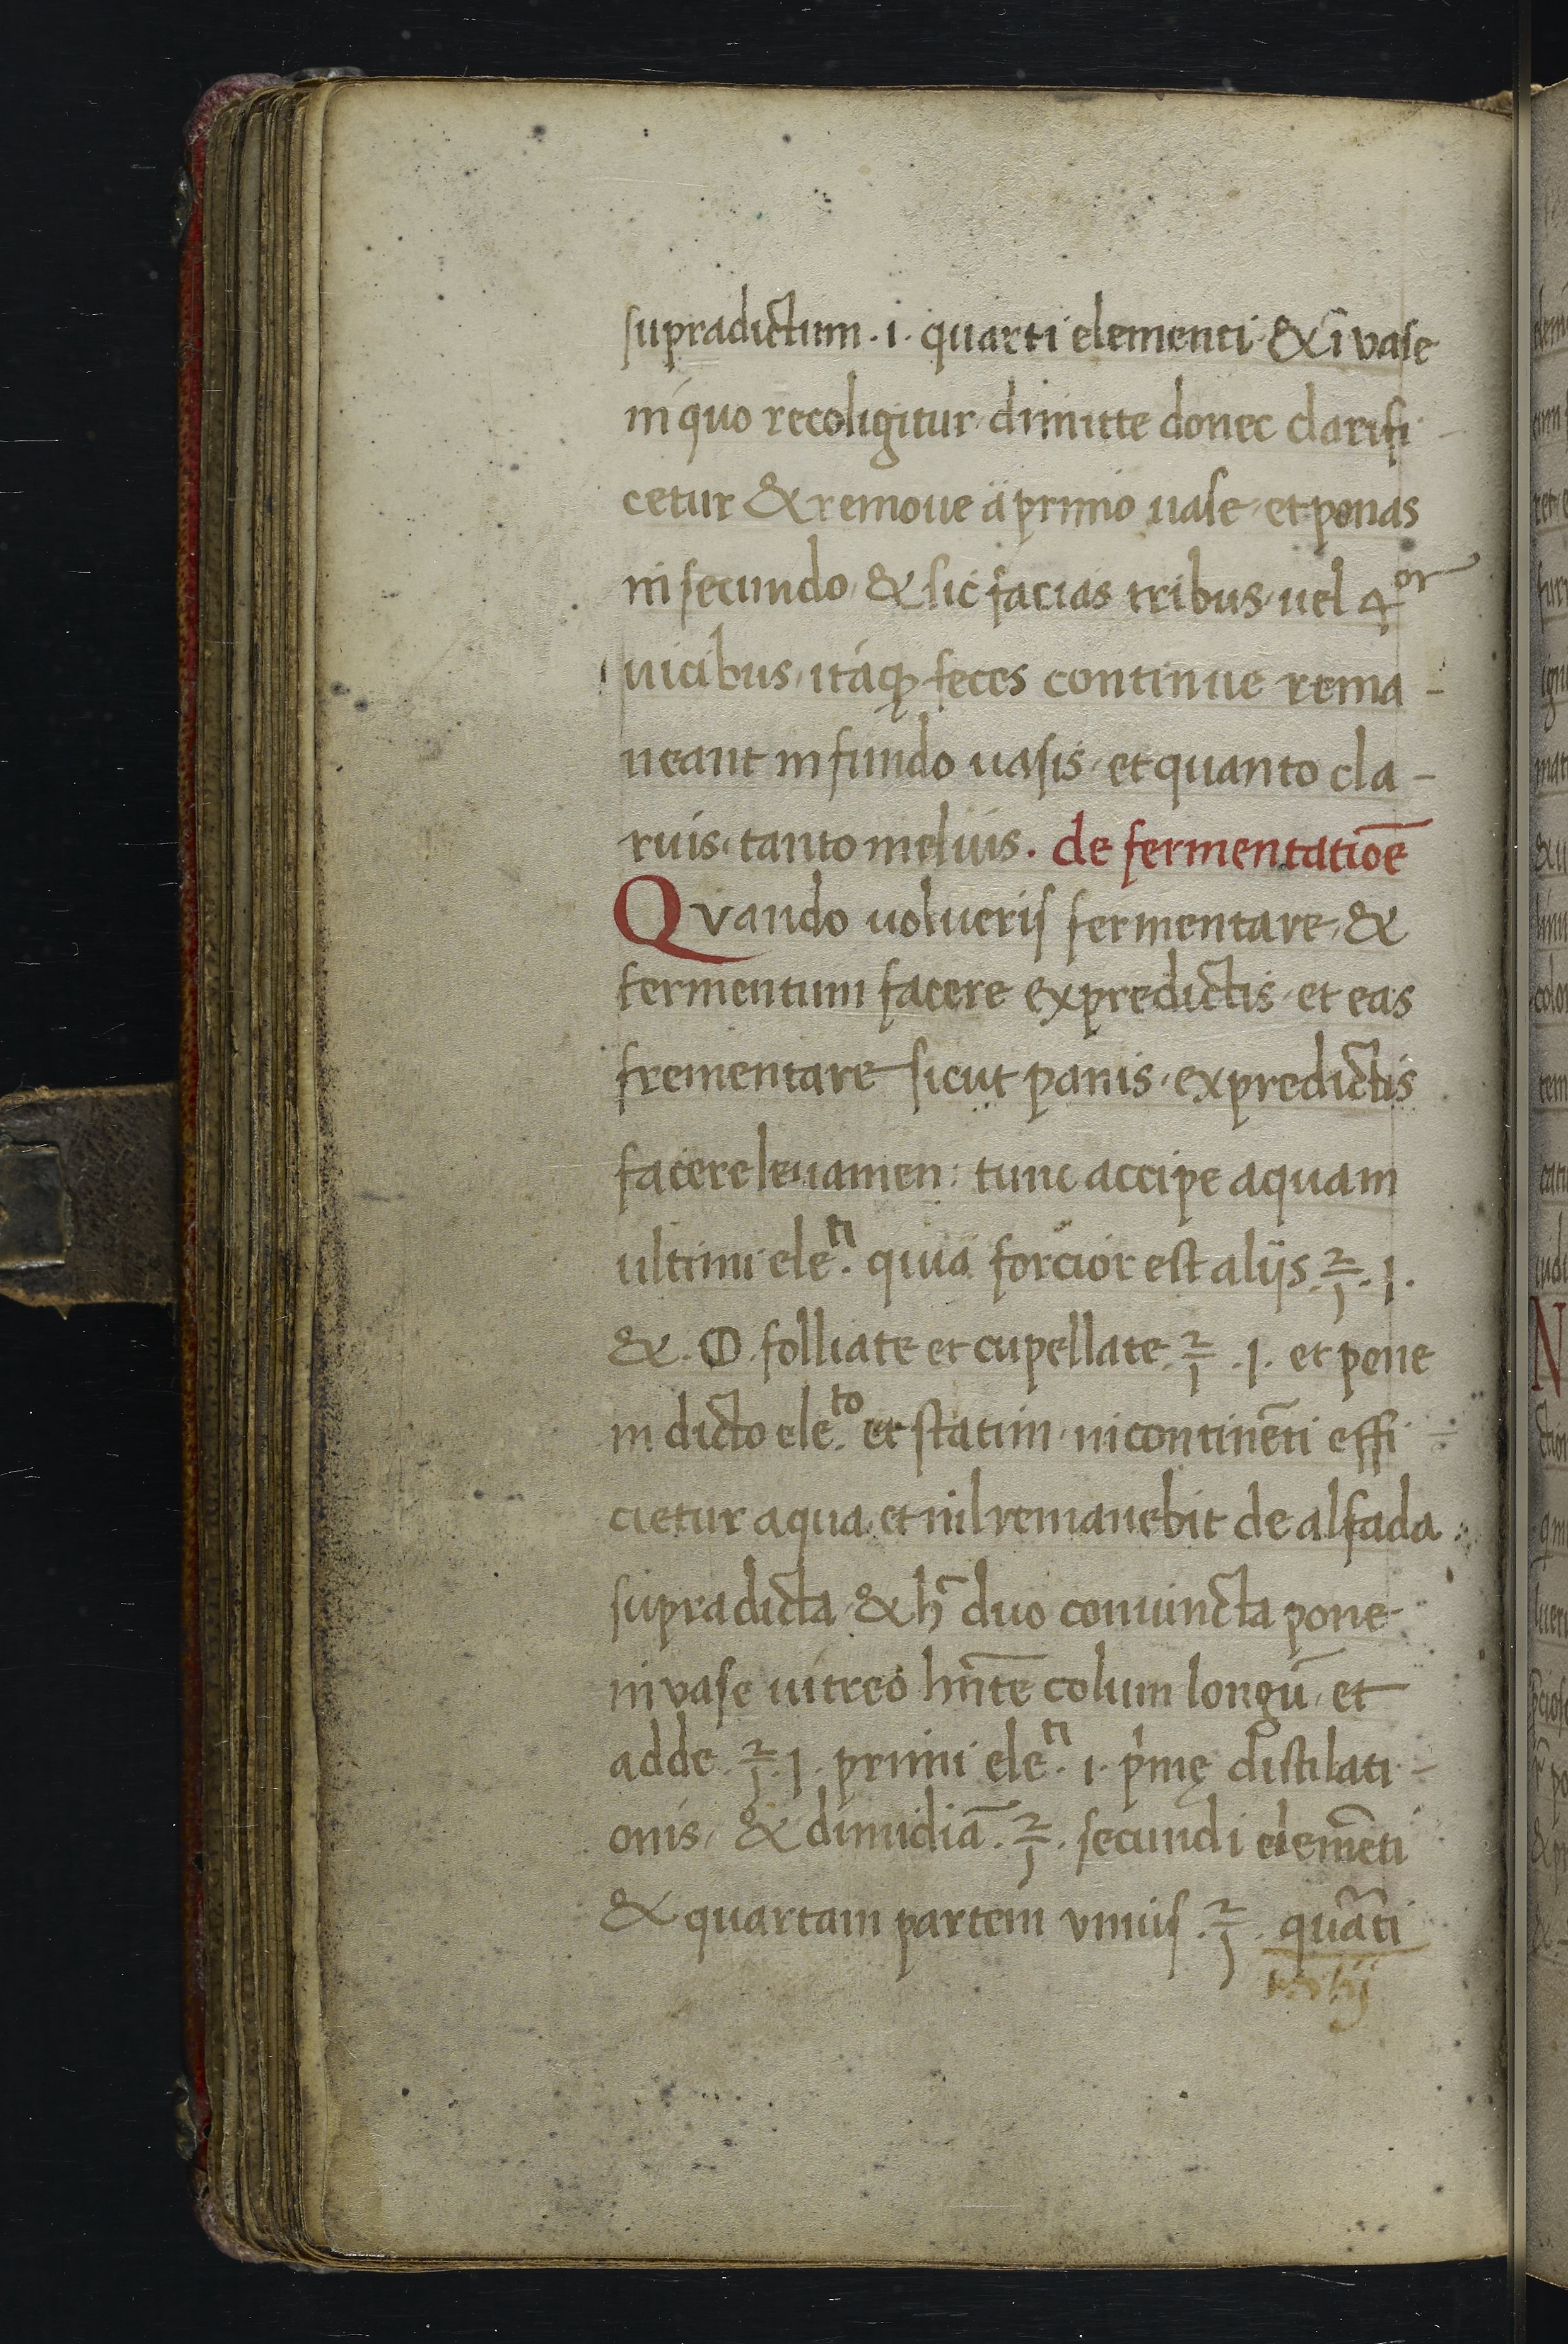 supradictum · i · quarti elementi & ī vase
in quo recoligitur dimitte donec clarifi-
cetur & remove a primo vase et ponas
in secundo & sic facias tribus vel 4or
vicibus itaque feces continue rema-
neant in fundo vasis et quanto cla-
ruis tanto meluis · de fermentatiōe
Quando volueris fermentare &
fermentum facere ex predictis et eas
frementare sicut panis ex predictis
facere levamen: tunc accipe aquam
ultimi eleti. quia forcior est aliis ℥ · I ·
& · O · folliate et cupellate ℥ · I · et pone
in dicto eleto. et statim in continēti effi-
cietur aqua et nil remanebit de alfada
supradicta & h̄ duo coniuncta pone
in vase vitreo hn̄te colum longū et
adde ℥ · I · primi eleti · i · p'mę distilati-
onis & dimidiā · ℥ · secundi elemēti
& quartam partem unius · ℥ · quarti